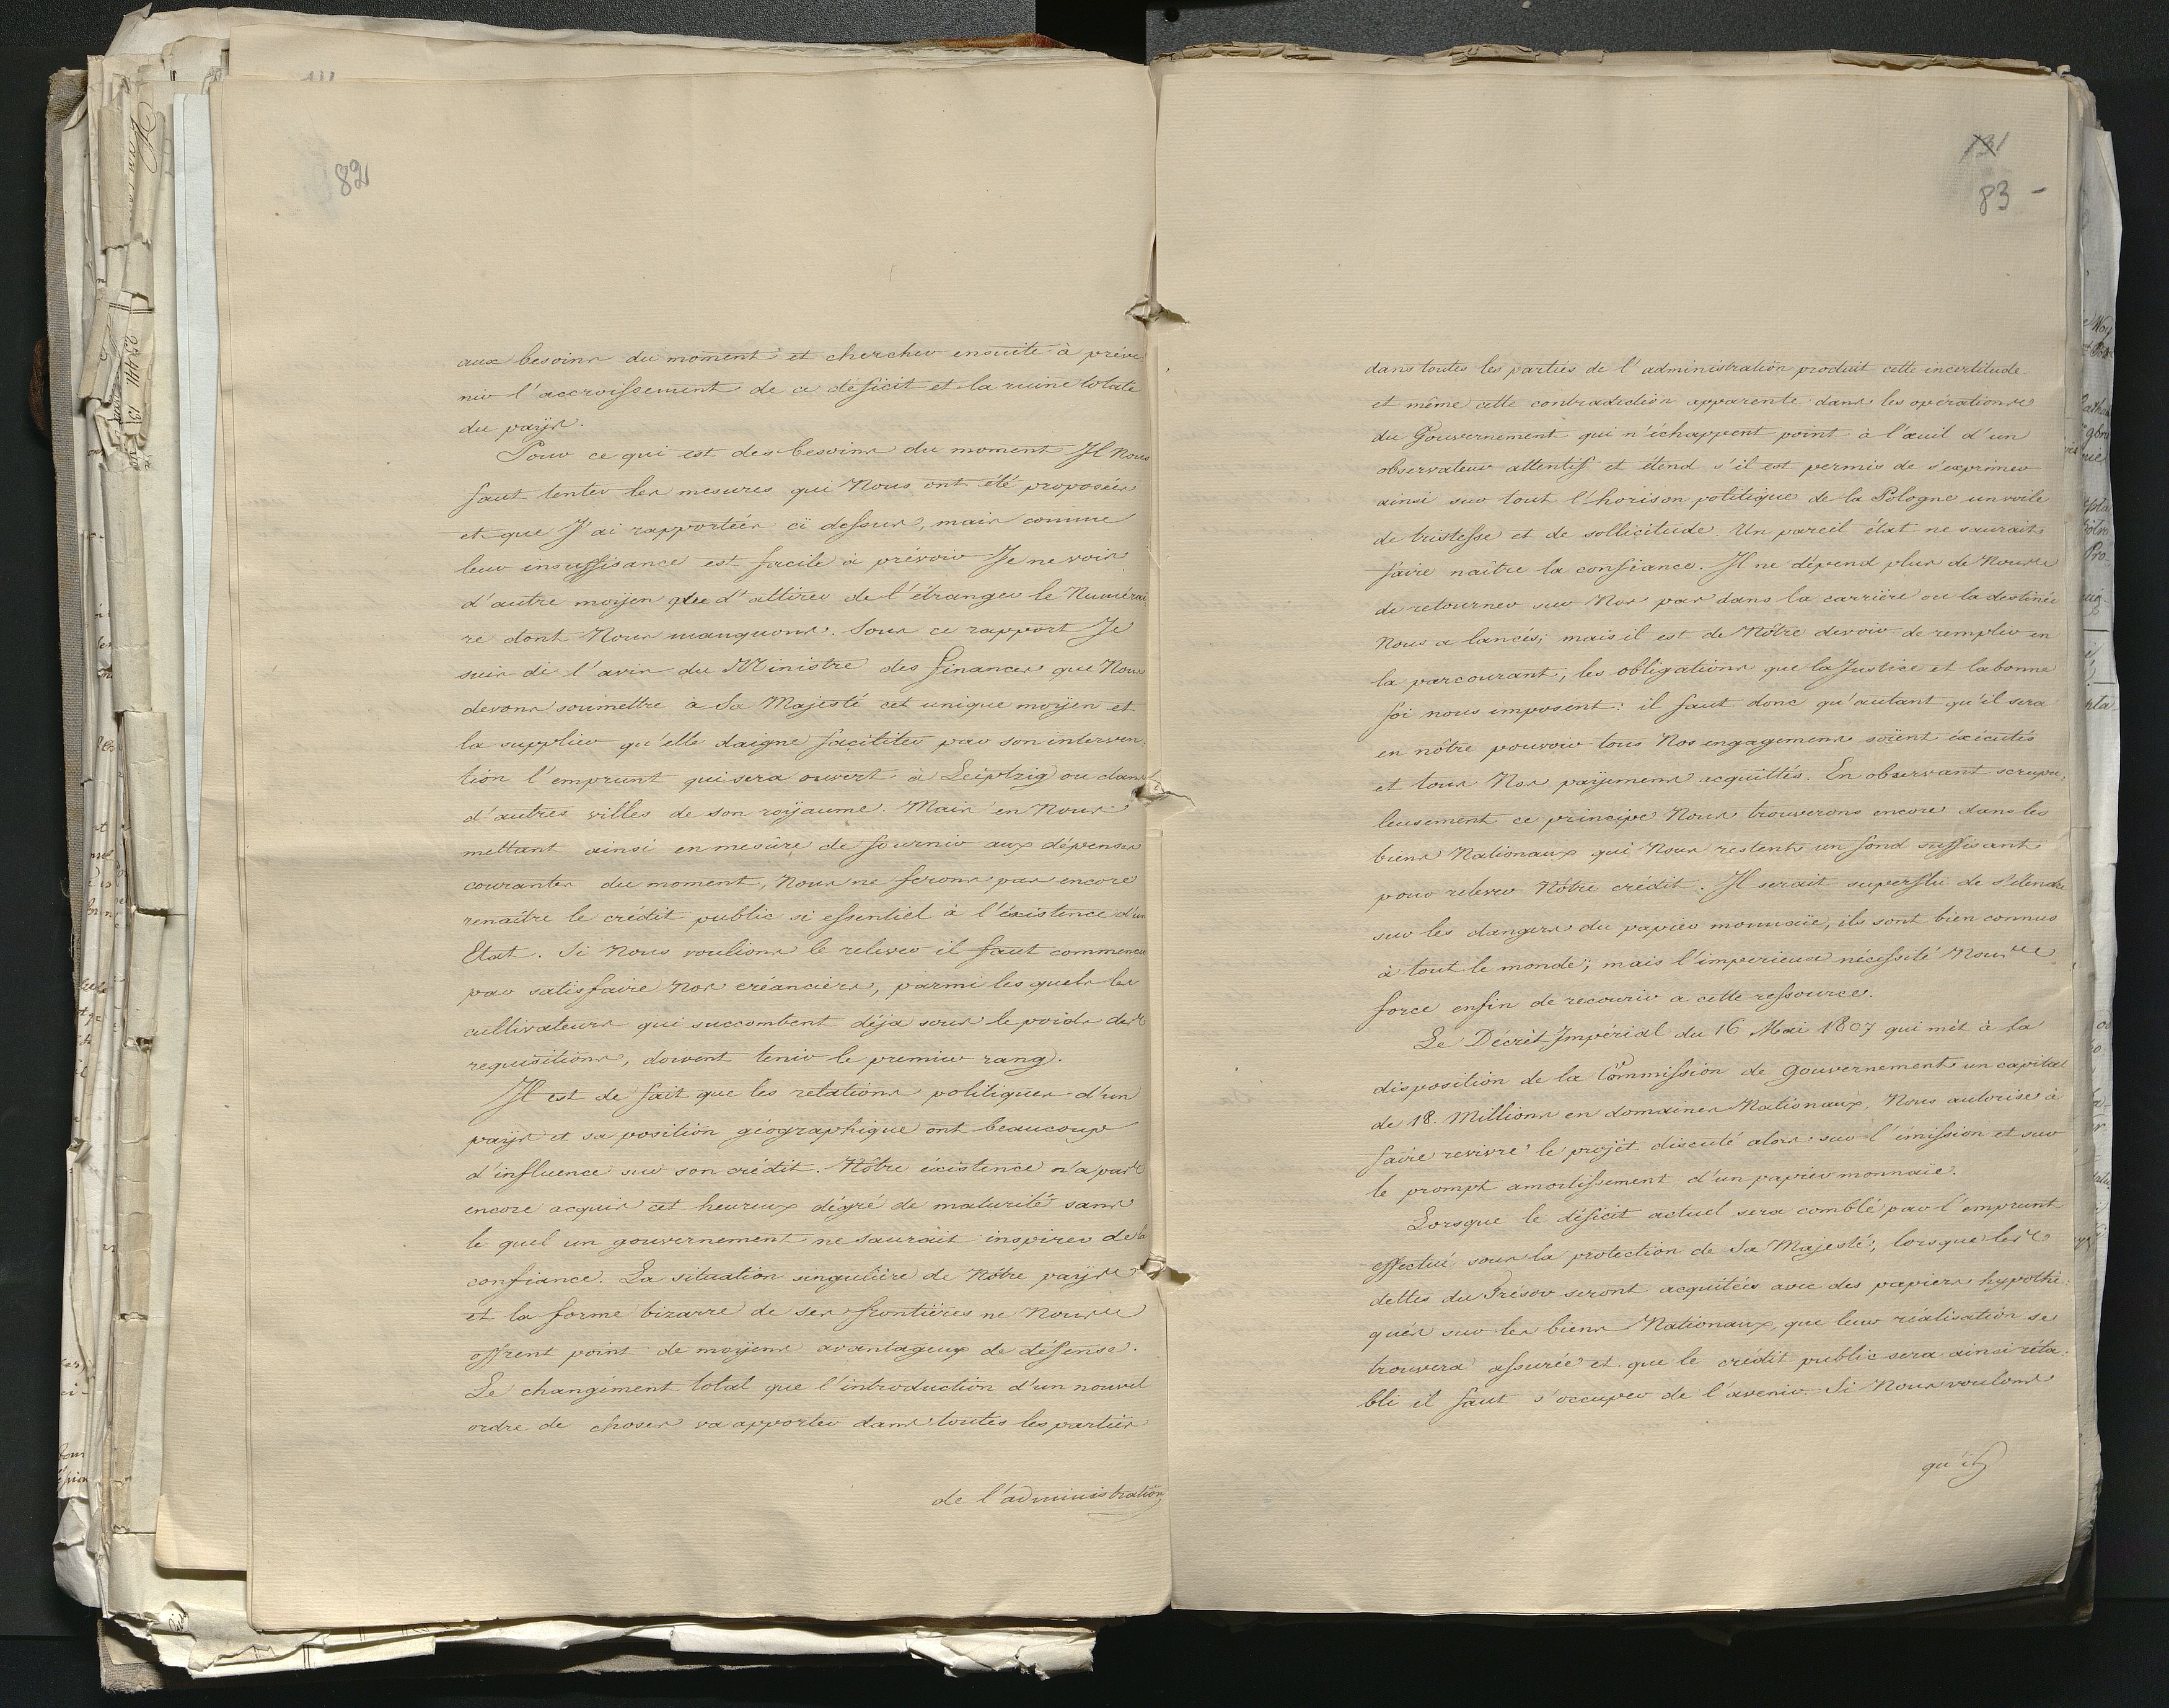 82
aux besoins du moment et chercher ensuite à préve
nir l'accroissement de ce deficit et la ruine totale
du paÿs.
Pour ce qui est des besoins du moment Il Nous
faut tenter les mesures qui Nous ont été proposées
et que J'ai rapportées ci dessus, mais comme
leur insuffisance est facile à prévoir Je ne vois
d'autre moÿen que d'attirer de l'étranger le Numérai
re dont Nous manquons. Sous ce rapport Je
suis de l'avis du Ministre des finances que Nous
devons soumettre a Sa Majesté cet unique moÿen et
la supplier qu'elle daigne faciliter par son interven:
tion l'emprunt qui sera ouvert à Leiptzig ou dans
d'autres villes de son roÿaume. Mais en Nous
mettant ainsi en mesûre de fournir aux dépenses
courantes du moment, Nous ne ferons pas encore
renaître le crédit public si essentiel à l'éxistence d'un
Etat. Si Nous voulions le relever il faut commencer
par satisfaire Nos créanciers, parmi les quels les
cultivateurs qui succombent déja sous le poids des
requisitions, doivent tenir le premier rang.
Il est de fait que les relations politiques d'un
paÿs et sa position géographique ont beaucoup
d'influence sur son crédit. Nôtre éxistence n'a pas
encore acquis cet heureux dégré de maturité sans
le quel un gouvernement ne saurait inspirer de la
confiance. La situation singulière de Nôtre paÿs
et la forme bizarre de ses frontières ne Nous
offrent point de moÿens avantageux de défense.
Le changement total que l'introduction d'un nouvel
ordre de choses va apporter dans toutes les parties
de l'administration
131
83 -
dans toutes les parties de l'administration produit cette incertitude
et même cette contradiction apparente dans les opérations
du Gouvernement qui n'échappent point à l'œuil d'un
observateur attentif et étend s'il est permis de s'exprimer
ainsi sur tout l'horison politique de la Pologne un voile
de tristesse et de sollicitude. Un pareil état ne saurait
faire naître la confiance. Il ne dépend plus de Nous
de retourner sur Nos pas dans la carrière ou la destinée
Nous a lancés; mais il est de Nôtre devoir de remplir en
la parcourant, les obligations que la Justice et la bonne
foi nous imposent: il faut donc qu'autant qu'il sera
en nôtre pouvoir tous Nos engagemens soient éxécutés
et tous Nos paÿemens acquittés. En observant scrupu:
leusement ce principe Nous trouverons encore dans les
biens Nationaux qui Nous restent un fond suffisant
pour relever Nôtre crédit. Il serait superflu de s'étendre
sur les dangers du papier monnaïe, ils sont bien connus
à tout le monde; mais l'imperieuse nécessité Nous
force enfin de recourir a cette ressource.
Le Décrét Impérial du 16 Mai 1807 qui mèt à la
disposition de la Commission de gouvernement un capital
de 18. Millions en domaines Nationaux, Nous autorise à
faire revivre le projèt discuté alors sur l'émission et sur
le prompt amortissement d'un papier monnaïe.
Lorsque le déficit actuel sera comblé par l'emprunt
effectué sous la protection de Sa Majesté; lorsque les
dettes du Trésor seront acquitées avec des papiers hypothé:
qués sur les biens Nationaux, que leur réalisation se
trouvera assurée et que le crédit public sera ainsi réta:
bli il faut s'occuper de l'avenir. Si Nous voulons
qu'il